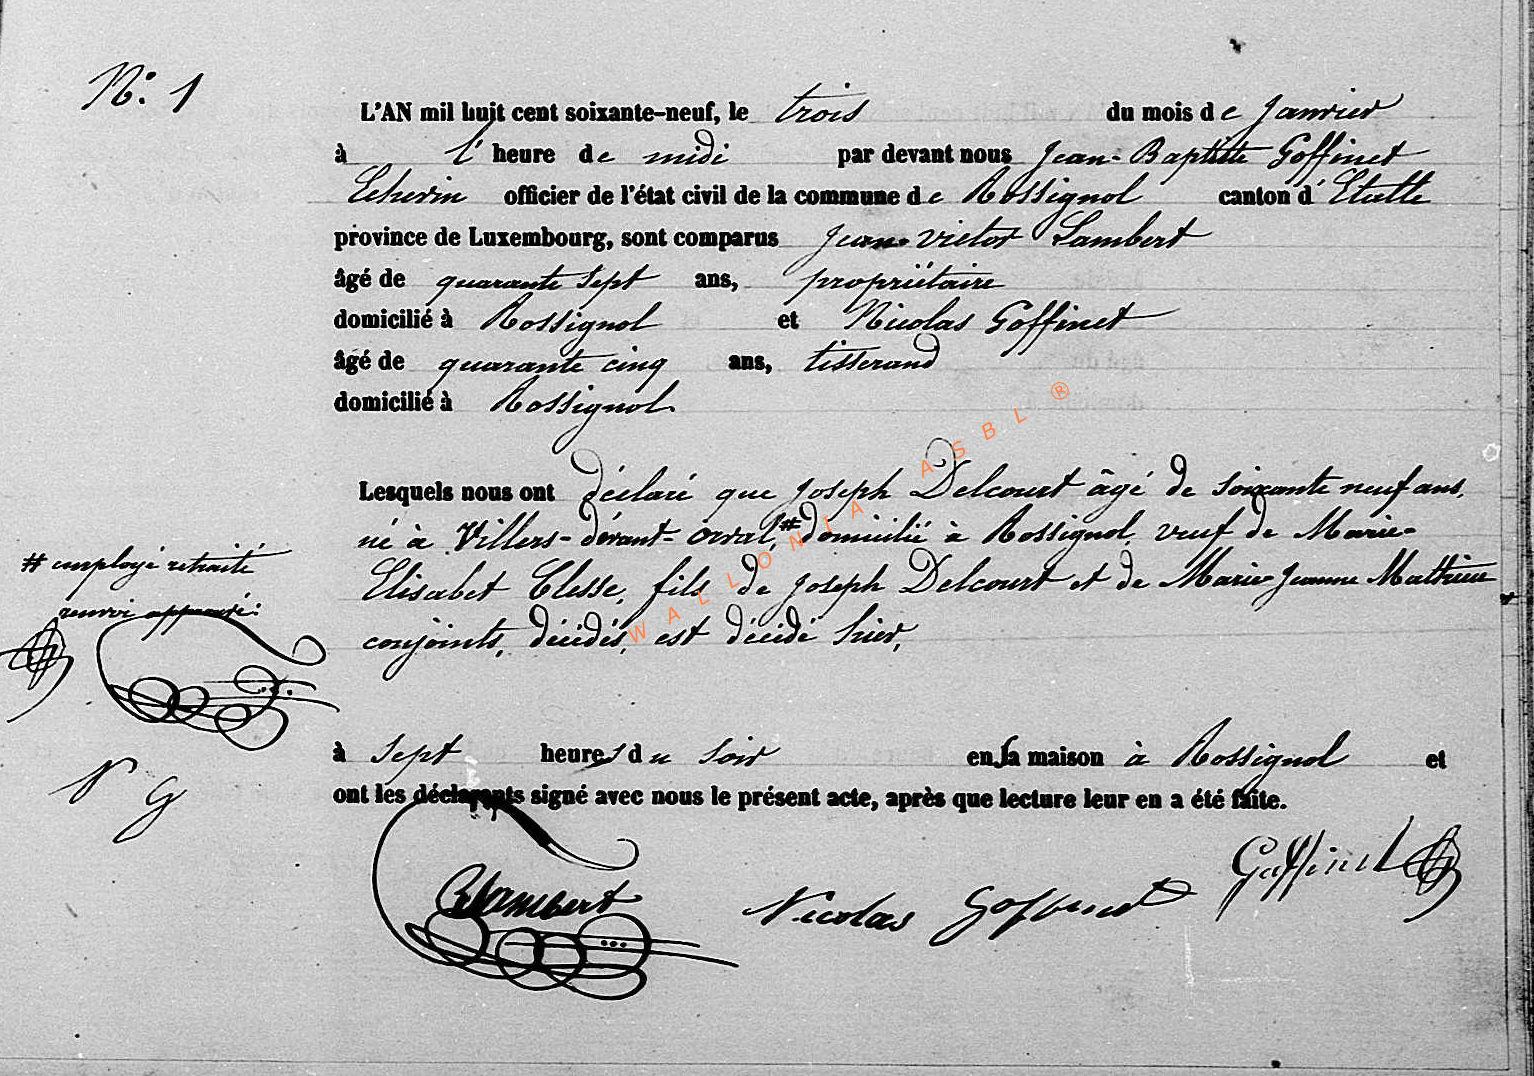 N° 1
L'AN mil huit cent soixante-neuf, le trois du mois de Janvier
à l' heure de midi par devant nous Jean-Baptiste Goffinet
Echevin officier de l'état civil de la commune de Rossignol canton d'Etalle
province de Luxembourg, sont comparus Jean-Victor Lambert
âgé de quarante sept ans, propriétaire
domicilié à Rossignol et Nicolas Goffinet
âgé de quarante cinq ans, tisserand
domicilié à Rossignol.
Lesquels nous ont déclaré que Joseph Delcourt âgé de soixante neuf ans,
né à Villers-dévant-Orval, # domicilié à Rossignol, veuf de Marie-
Elisabet Clesse, fils de Joseph Delcourt et de Marie Jeanne Matthieu
conjoints, décédés, est décédé hier,
# employé retraité
renvoi approuvé:
N G
à sept heures du soir en sa maison à Rossignol et
ont les déclarants signé avec nous le présent acte, après que lecture leur en a été faite.
Lambert Nicolas Goffinet Goffinet
WALLONIA ASBL ®